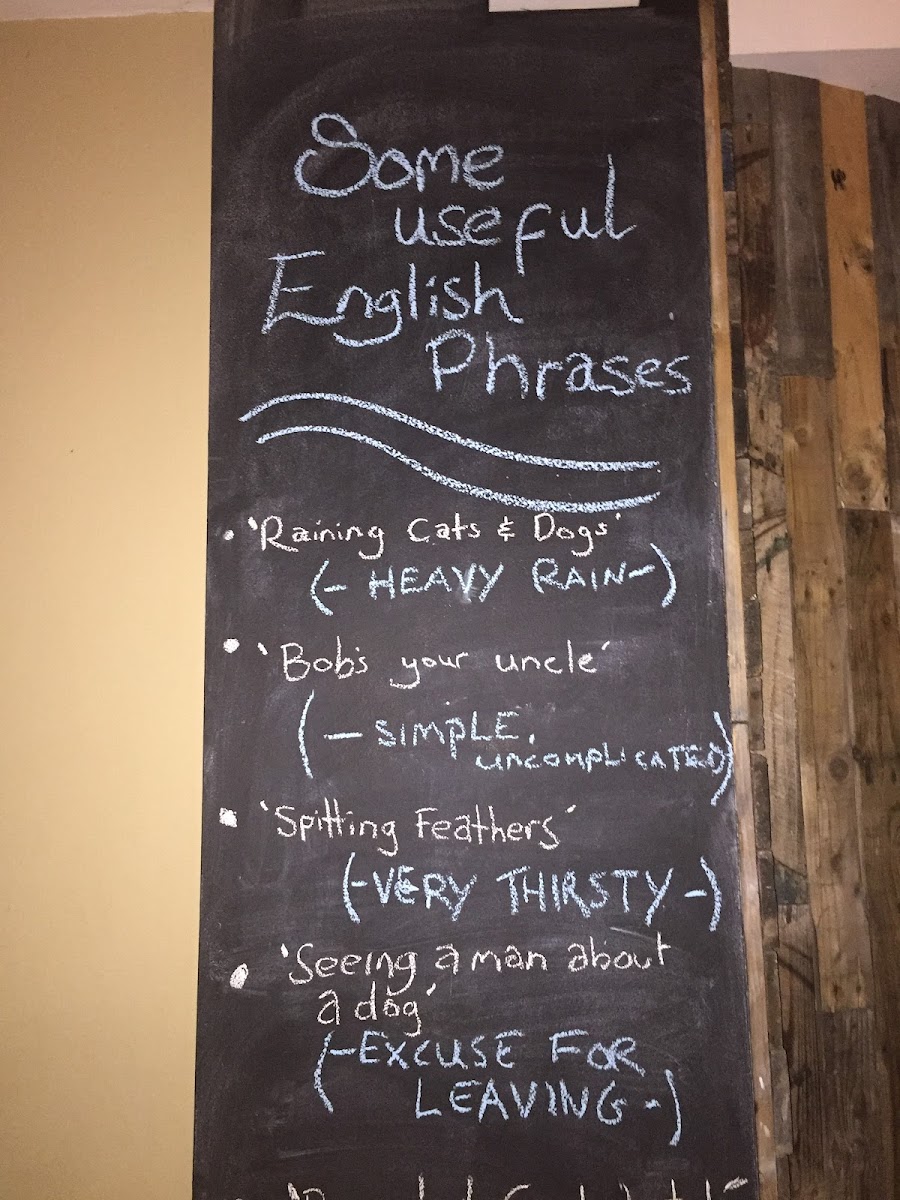 Some
useful
English
Phrases
• 'Raining Cats & Dogs'
(- HEAVY RAIN-)
• 'Bob's your uncle'
(- SIMPLE,
UNCOMPLICATED)
• 'Spitting Feathers'
(-VERY THIRSTY-)
• 'Seeing a man about
a dog'
(-EXCUSE FOR
LEAVING-)